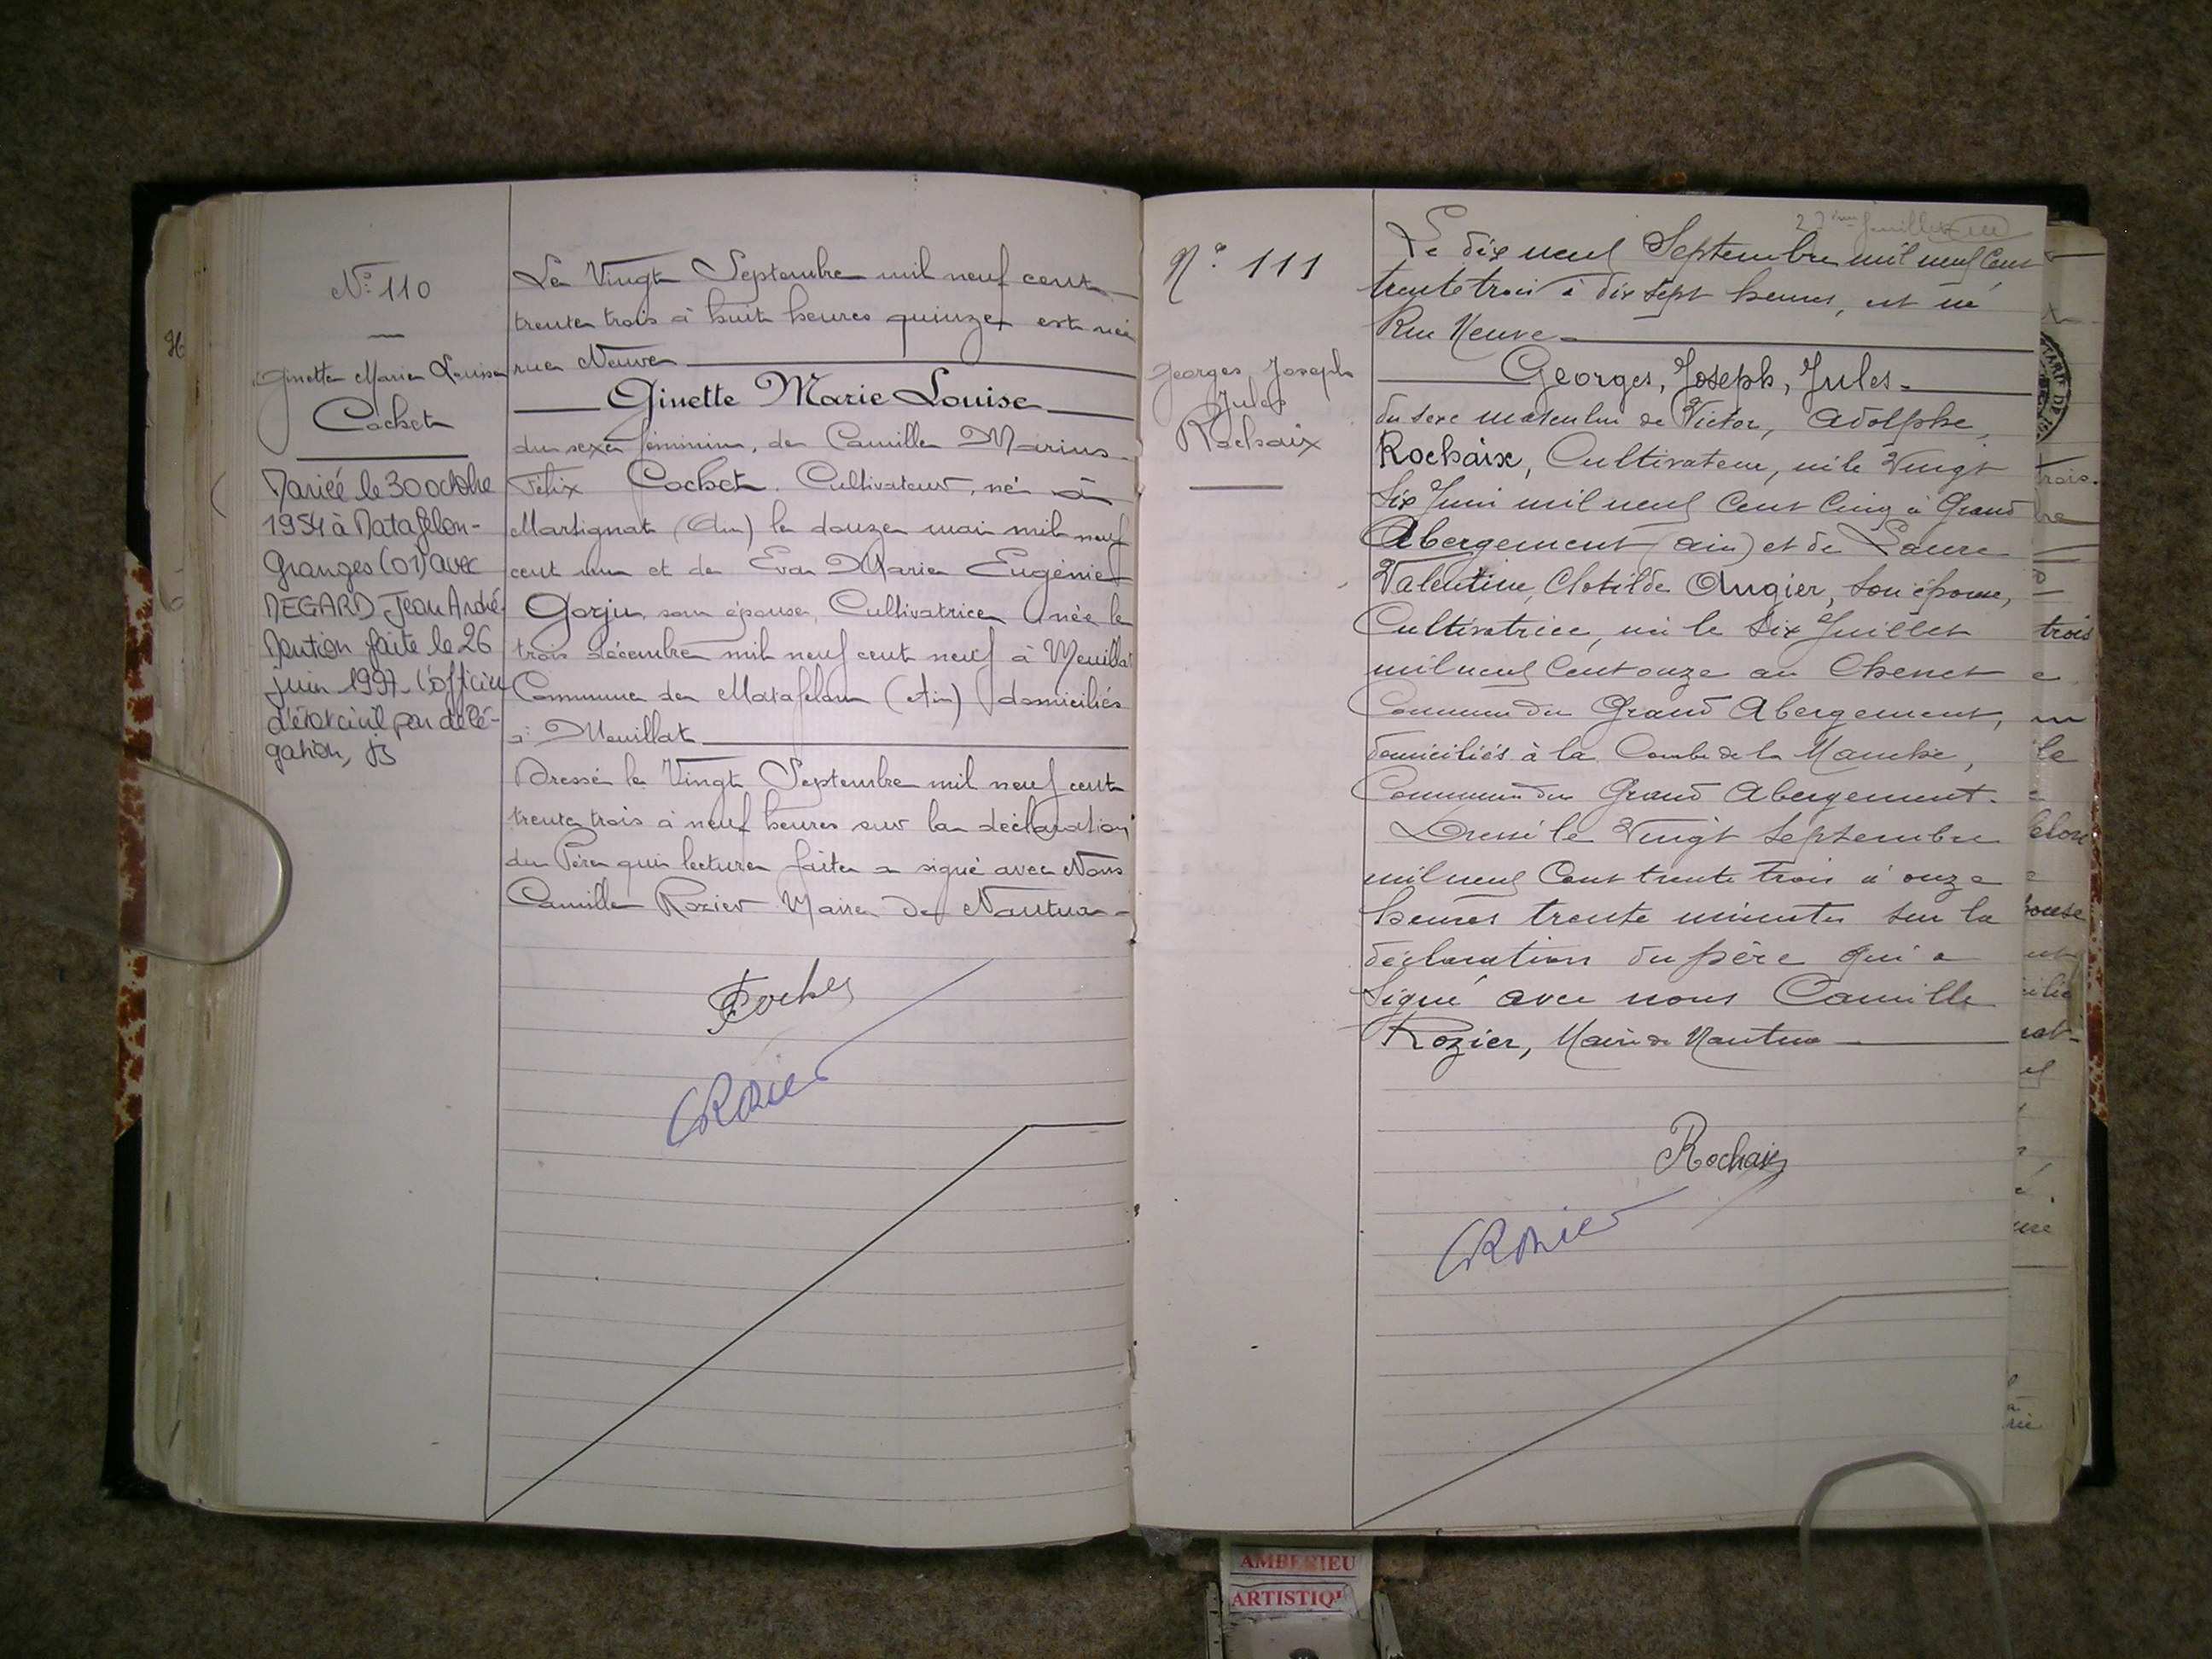 N° 110
Ginette Marie Louise
Cochet
Mariée le 30 octobre
1954 à Matafelon-
Granges (01) avec
MEGARD Jean André
Mention faite le 26
juin 1997. L'officier
d'état civil par délé-
gation,
Le Vingt Septembre mil neuf cent
trente trois à huit heures quinze est née
rue Neuve
Ginette Marie Louise
du sexe féminin, de Camille Marius
Félix Cochet. Cultivateur, né à
Martignat (Ain) le douze mai mil neuf
cent un et de Eva Marie Eugénie
Gorju son épouse, Cultivatrice née le
trois décembre mil neuf cent neuf à Meuillat
Commune de Matafelon (Ain) domiciliés
à Meuillat
Dressé le Vingt Septembre mil neuf cent
trente trois à neuf heures sur la déclaration
du Père qui lecture faite a signé avec Nous
Camille Rozier Maire de Nantua
N° 111
Georges, Joseph
Jules
Rochaix
Le dix neuf Septembre mil neuf Cent
trente trois à dix sept heures, est né
Rue Neuve
Georges, Joseph, Jules
du sexe masculin de Victor, Adolphe,
Rochaix, Cultivateur, né le Vingt
Six Juin mil neuf Cent Cinq à Grand
Abergement (ain) et de Laure
Valentine, Clotilde Augier, son épouse,
Cultivatrice, née le Six Juillet
mil neuf Cent onze au Chenet
Commune du Grand Abergement,
domiciliés à la Combe de la Manche,
Commune du Grand Abergement.
Dressé le Vingt Septembre
mil neuf Cent trente trois à onze
heures trente minutes sur la
déclaration du père qui a
Signé avec nous Camille
Rozier, Maire de Nantua
Rochaix
trois
le
AMBERIEU